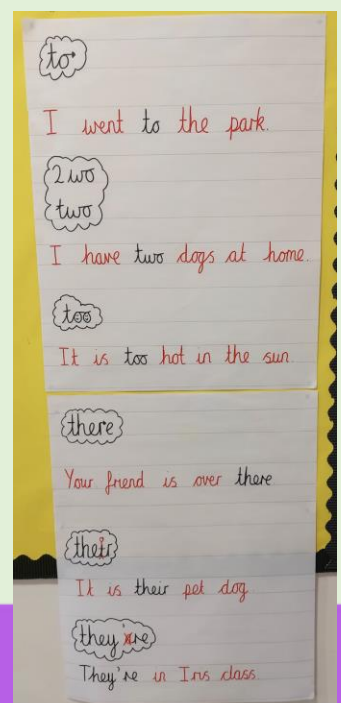 to
I went to the park.
2wo
two
I have two dogs at home.
too
It is too hot in the sun
there
Your friend is over there
their
It is their pet dog
they're
They're in Iris class